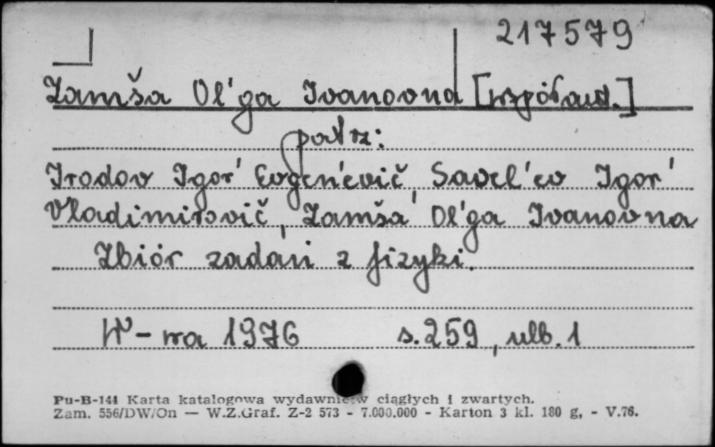 217579
Zamša Ol'ga Ivanovna [współaut.]
patrz:
Irodov Igor' Evgen'evič, Savel'ev Igor'
Vladimirovič, Zamša Ol'ga Ivanovna
Zbiór zadań z fizyki.
W-wa 1976 s. 259, nlb. 1
Pu-B-144 Karta katalogowa wydawnictw ciągłych i zwartych.
Zam. 556/DW/On — W.Z.Graf. Z-2 573 - 7.000.000 - Karton 3 kl. 180 g, - V.76.